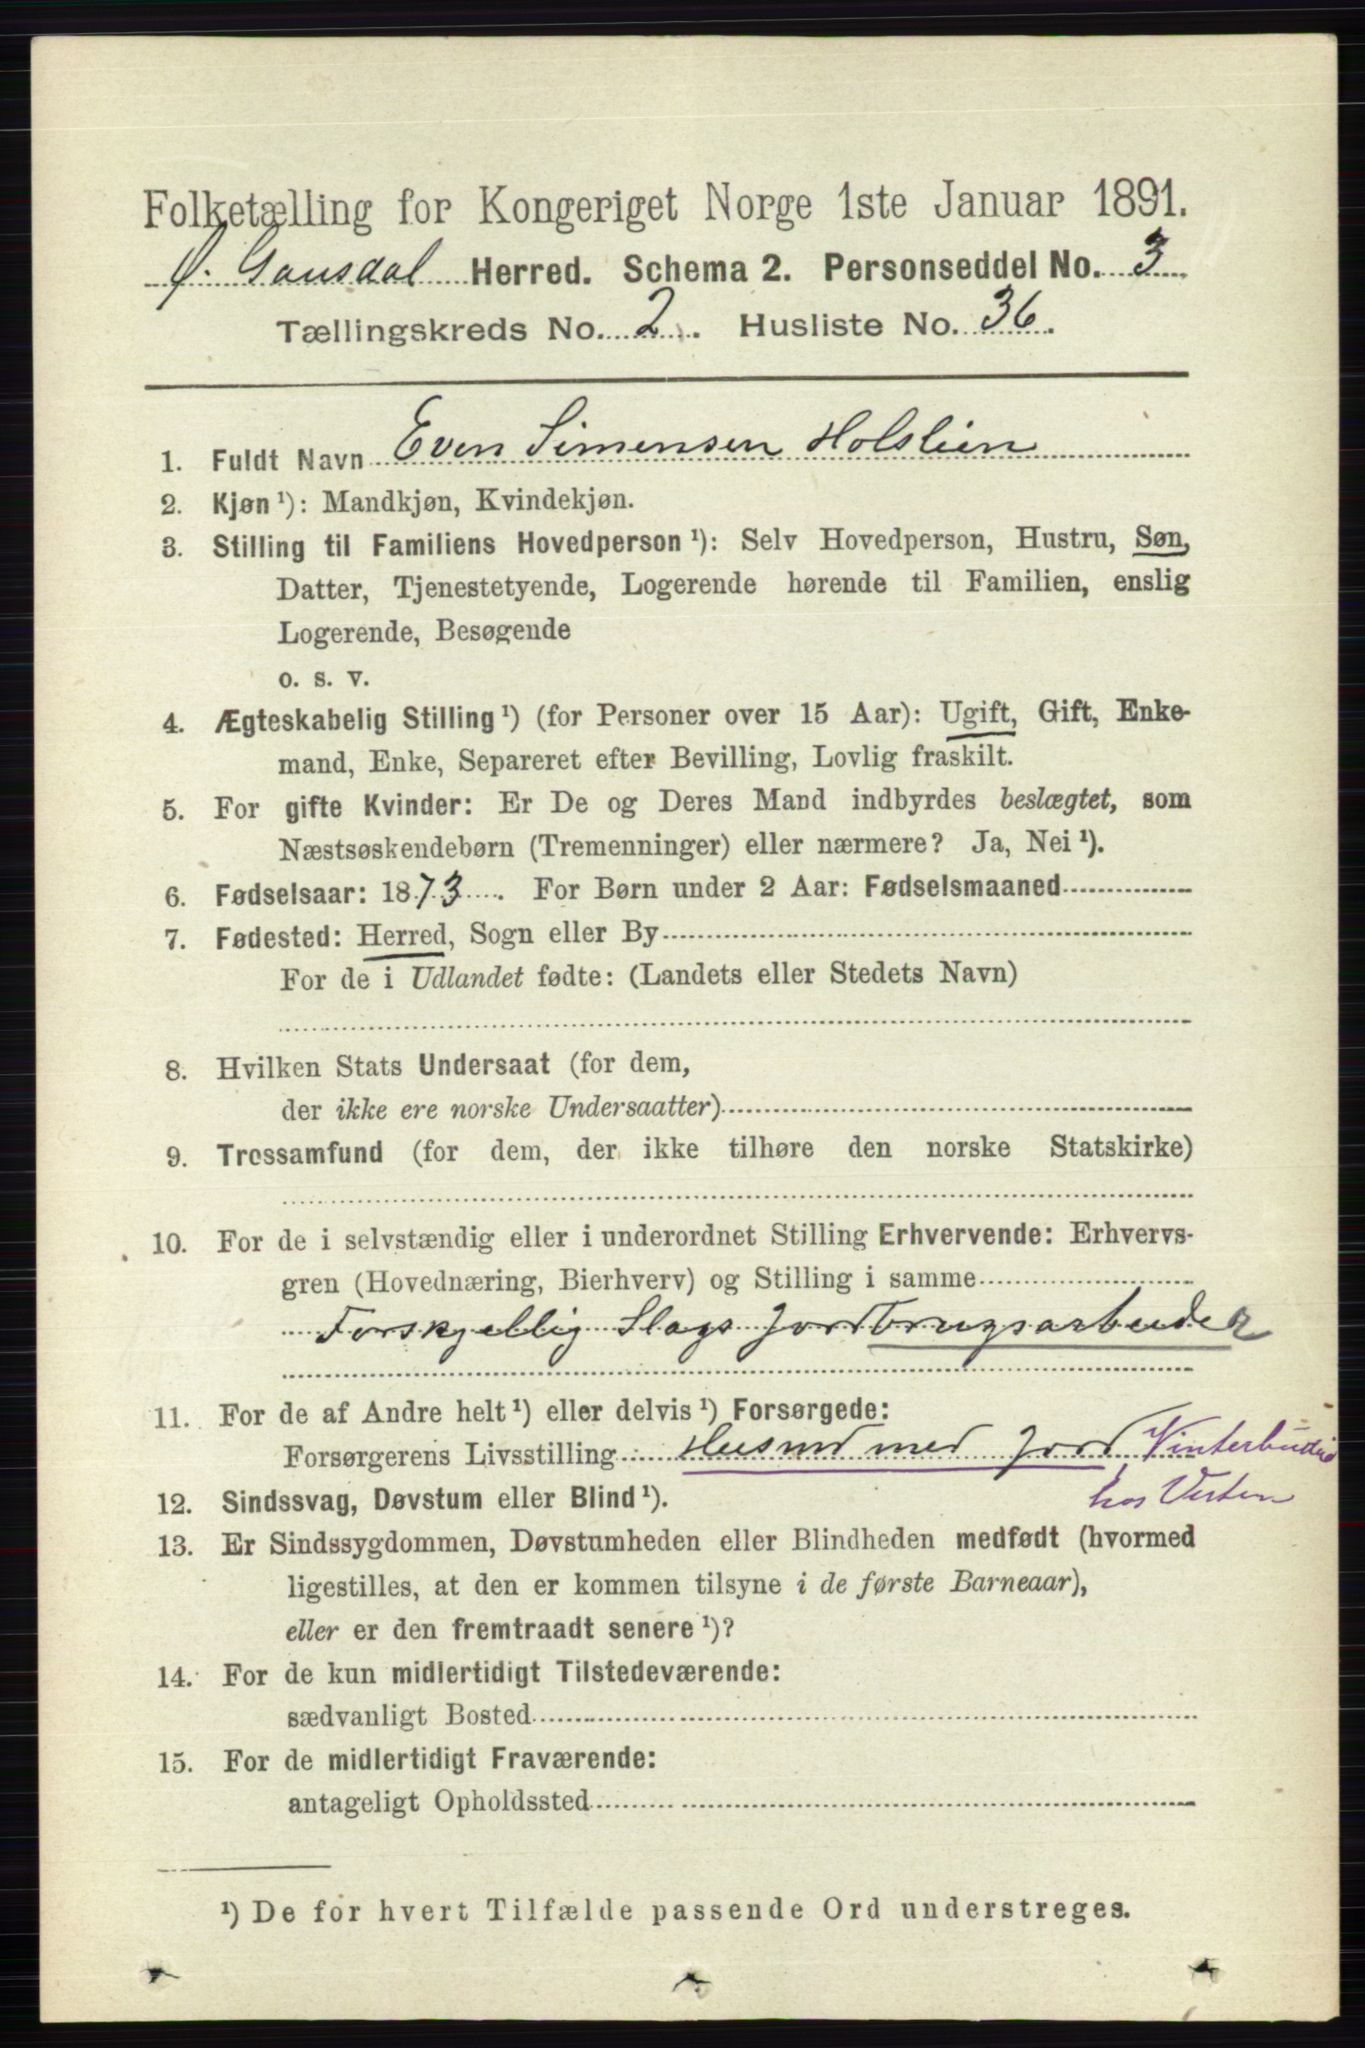 Folketælling for Kongeriget Norge 1ste Januar 1891.
Ø. Gausdal Herred. Schema 2. Personseddel No. 3
Tællingskreds No. 2. Husliste No. 36.
1. Fuldt Navn Even Simensen Holslien
2. Kjøn ¹): Mandkjøn, Kvindekjøn.
3. Stilling til Familiens Hovedperson ¹): Selv Hovedperson, Hustru, Søn,
Datter, Tjenestetyende, Logerende hørende til Familien, enslig
Logerende, Besøgende
o. s. v.
4. Ægteskabelig Stilling ¹) (for Personer over 15 Aar): Ugift, Gift, Enke-
mand, Enke, Separeret efter Bevilling, Lovlig fraskilt.
5. For gifte Kvinder: Er De og Deres Mand indbyrdes beslægtet, som
Næstsøskendebørn (Tremenninger) eller nærmere? Ja, Nei ¹).
6. Fødselsaar: 1873. For Børn under 2 Aar: Fødselsmaaned
7. Fødested: Herred, Sogn eller By
For de i Udlandet fødte: (Landets eller Stedets Navn)
8. Hvilken Stats Undersaat (for dem,
der ikke ere norske Undersaatter)
9. Trossamfund (for dem, der ikke tilhøre den norske Statskirke)
10. For de i selvstændig eller i underordnet Stilling Erhvervende: Erhvervs-
gren (Hovednæring, Bierhverv) og Stilling i samme
Forskjellig Slags Jordbrugsarbeider
11. For de af Andre helt ¹) eller delvis ¹) Forsørgede:
Forsørgerens Livsstilling Husmd med Jord
hos
12. Sindssvag, Døvstum eller Blind ¹).
13. Er Sindssygdommen, Døvstumheden eller Blindheden medfødt (hvormed
ligestilles, at den er kommen tilsyne i de første Barneaar),
eller er den fremtraadt senere ¹)?
14. For de kun midlertidigt Tilstedeværende:
sædvanligt Bosted
15. For de midlertidigt Fraværende:
antageligt Opholdssted
¹) De for hvert Tilfælde passende Ord understreges.